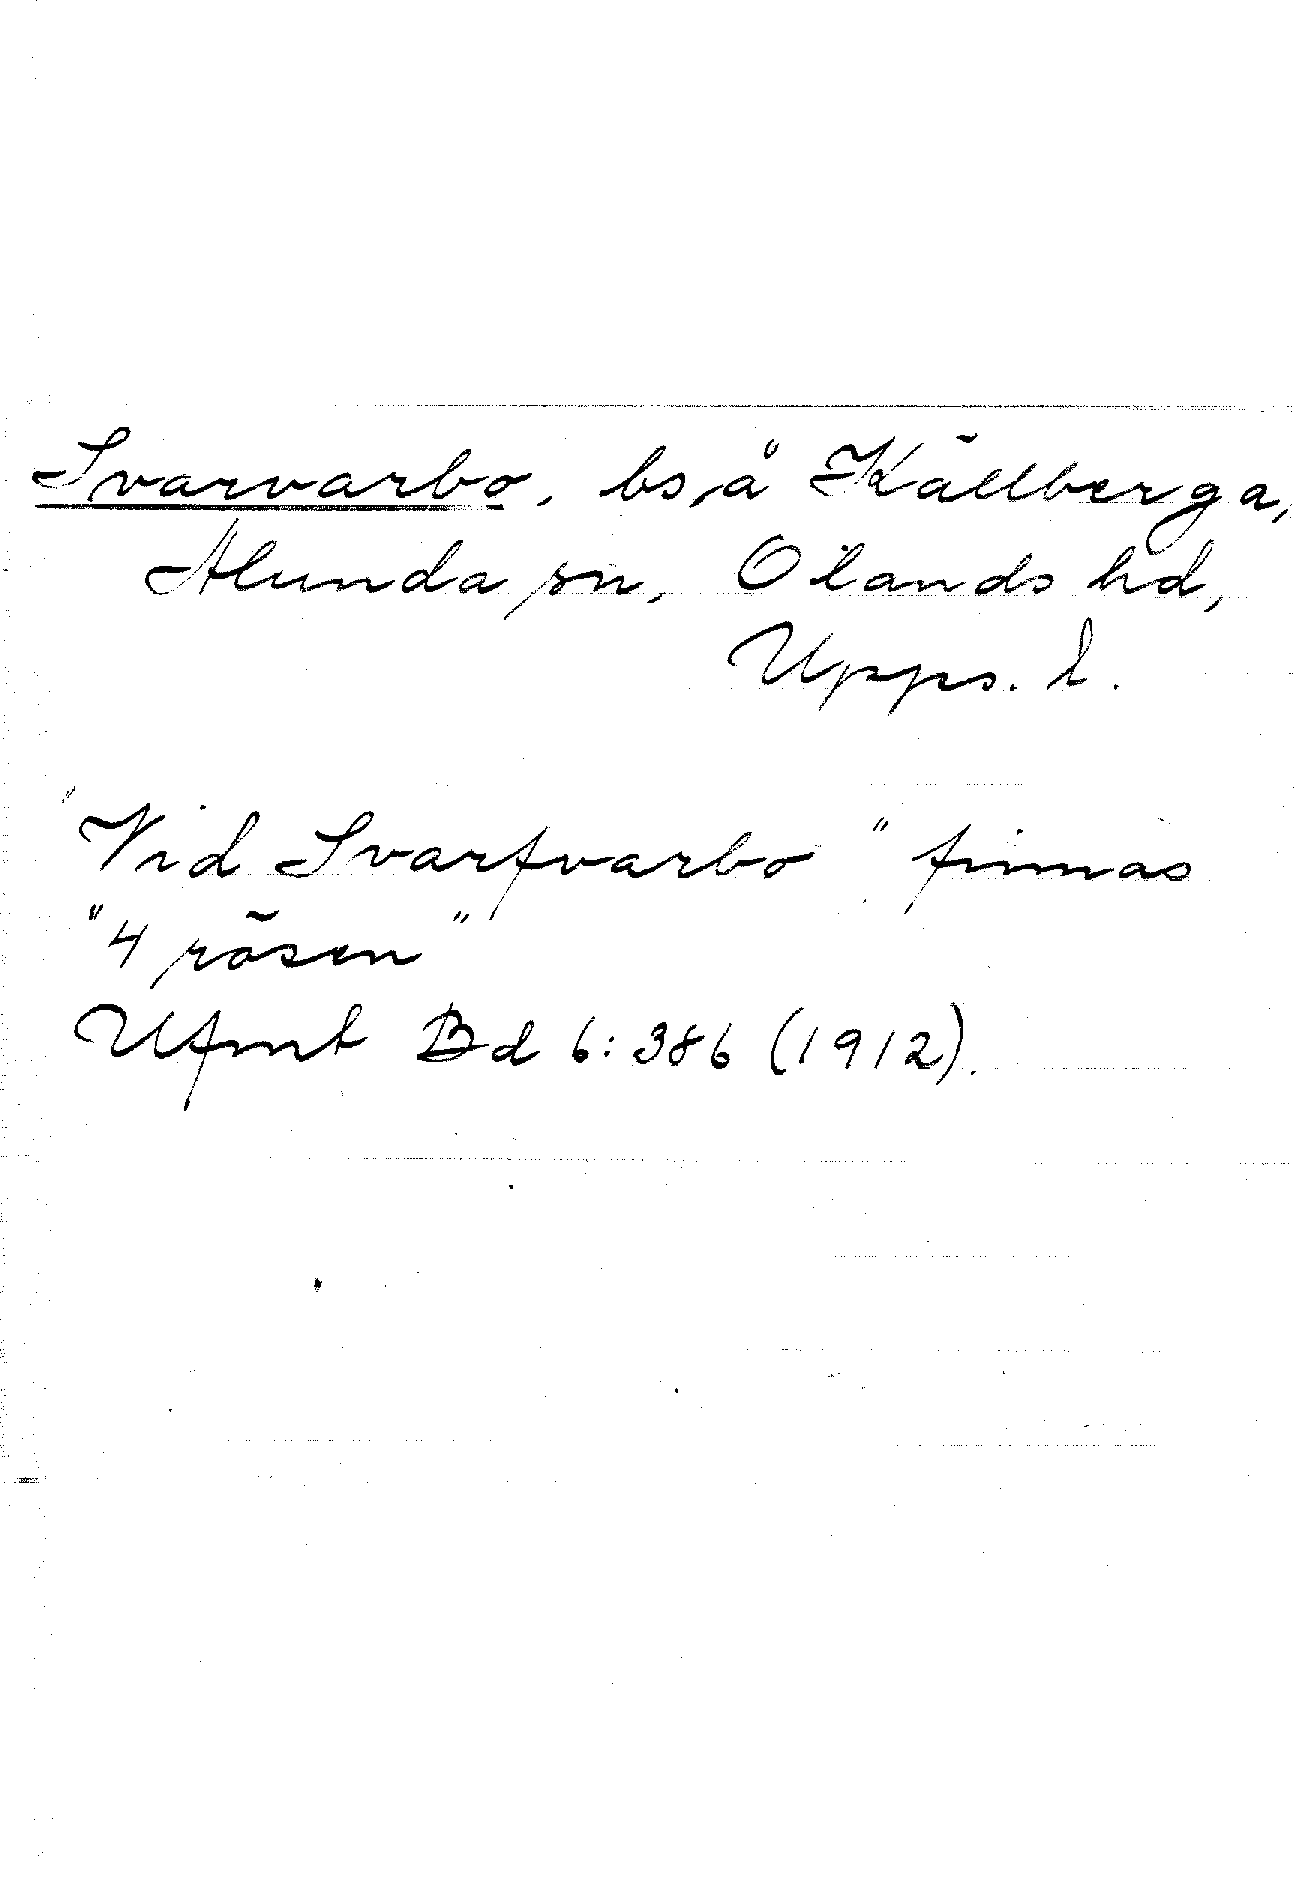 Svarvarbo, bs, å Källberga,
Alunda sn, Olands hd,
Upps. l.
"Vid Svarfvarbo" finnas
"4 rösen"
Ufmt Bd 6:386 (1912).